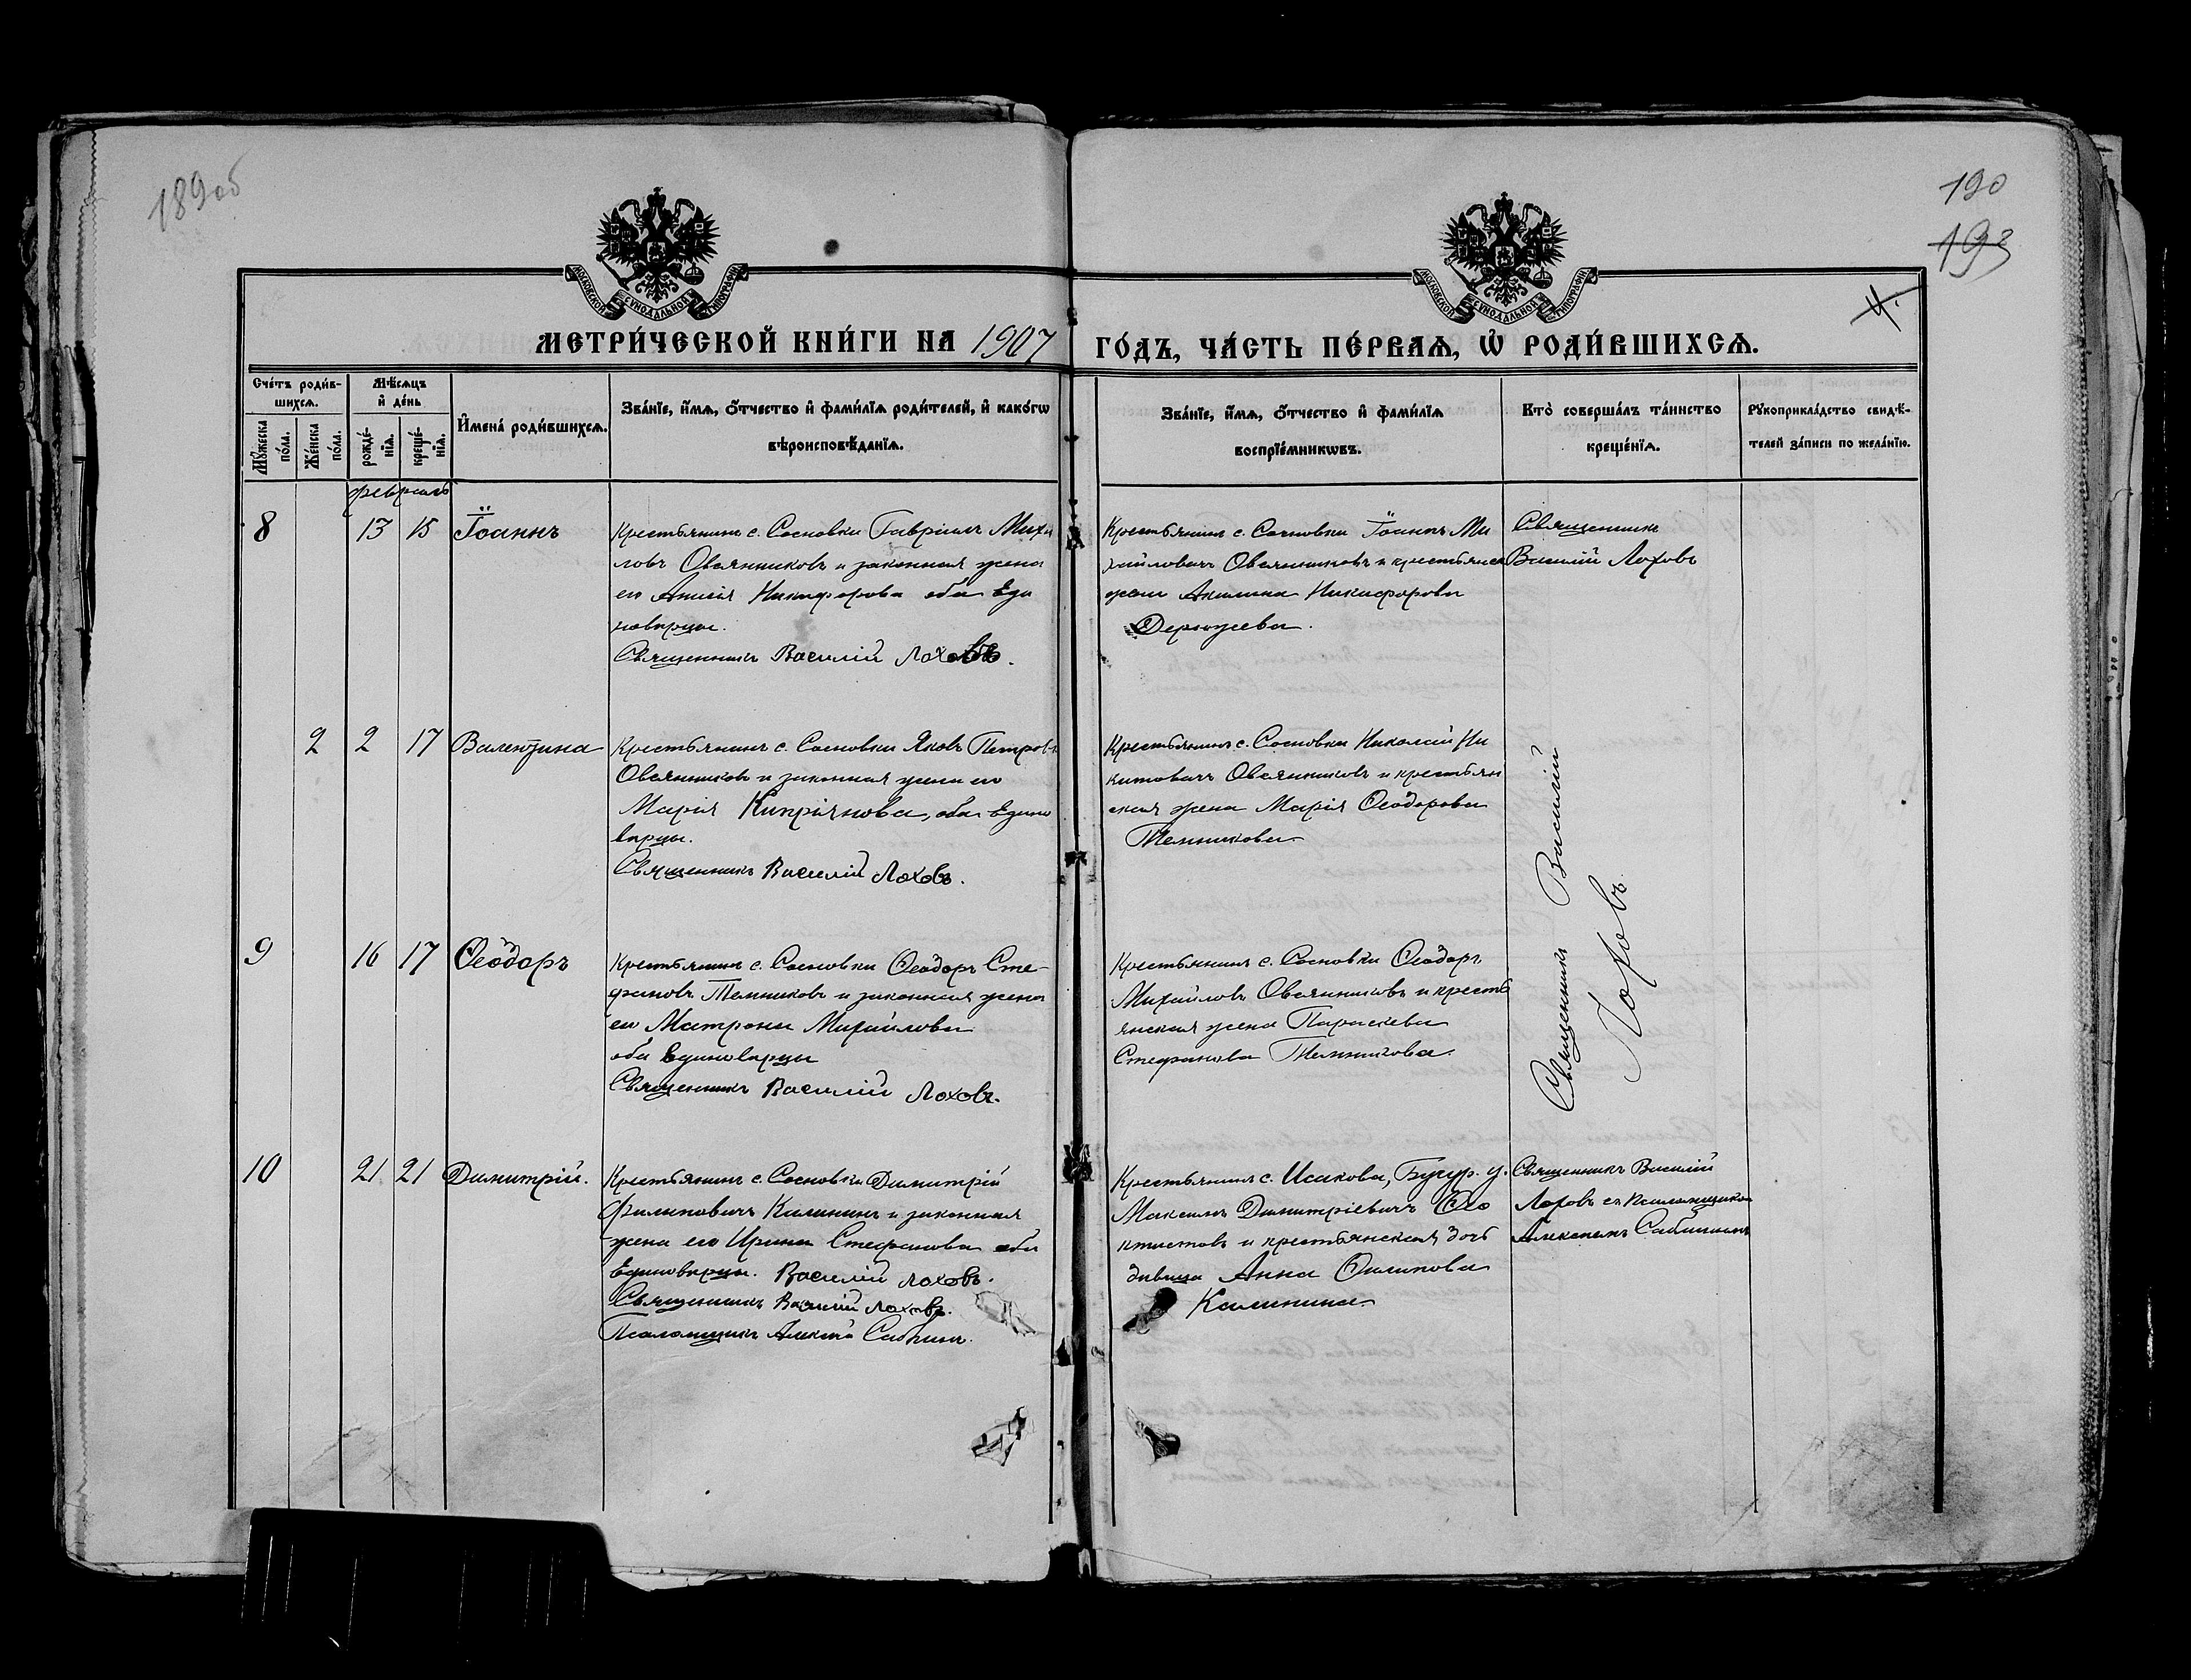 189об
190
193
МОСКОВСКОЙ СѴНОДАЛЬНОЙ ТИПОГРАФІИ
МОСКОВСКОЙ СѴНОДАЛЬНОЙ ТИПОГРАФІИ
4.
МЕТРИ́ЧЕСКОЙ КНИ́ГИ НА 1907 ГО́ДЪ, ЧА́СТЬ ПЕ́РВАѦ, Ѡ҆ РОДИ́ВШИХСѦ.
Сче́тъ роди́в-
шихсѧ.
Мѣ́сѧцъ
и҆ де́нь
Мꙋ́жеска
по́ла.
Же́нска
по́ла.
рожде́-
нїѧ.
креще́-
нїѧ.
И҆мена̀ роди́вшихсѧ.
Зва́нїе, и҆́мѧ, ѻ҆́тчество и҆ фами́лїѧ роди́телей, и҆ како́гѡ
вѣроисповѣ́данїѧ.
Зва́нїе, и҆́мѧ, ѻ҆́тчество и҆ фами́лїѧ
воспрїе́мникѡвъ.
Кто̀ соверша́лъ та́инство
креще́нїѧ.
Рꙋкоприкла́дство свидѣ́-
телей за́писи по жела́нїю.
февраль
8
13
15
Іоаннъ
Крестьянинъ с. Сосновки Гавріилъ Михаи
ловъ Овсянниковъ и законная жена
его Анисія Никифорова оба еди
новѣрцы.
Священникъ Василій Лоховъ.
Крестьянинъ с. Сосновки Іоаннъ Ми
хайловичъ Овсянниковъ и крестьянск
жена Акилина Никифорова
Священникъ
Василій Лоховъ
2
2
17
Валентина
Крестьянинъ с. Сосновки Яковъ Петровъ
Овсянниковъ и законная жена его
Марія Кипріянова, оба едино
вѣрцы.
Священникъ Василій Лоховъ.
Крестьянинъ с. Сосновки Николай Ни
китовичъ Овсянниковъ и крестьян
ская жена Марія Ѳеодорова
Темникова
Священникъ Василій
Лоховъ
9
16
17
Ѳеодоръ
Крестьянинъ с. Сосновки Ѳеодоръ Сте-
фановъ Темниковъ и законная жена
его Матрона Михайлова
оба единовѣрцы
Священникъ Василій Лоховъ.
Крестьянинъ с. Сосновки Ѳеодоръ
Михайловъ Овсянниковъ и кресть
янская жена Параскева
Стефанова Темникова.
10
21
21
Димитрій.
Крестьянинъ с. Сосновки Димитрій
Филиповичъ Калининъ и законная
жена его Ирина Стефанова оба
единовѣрцы. Василій Лоховъ.
Священникъ Василій Лоховъ.
Псаломщикъ Алексѣй Сабининъ.
Крестьянинъ с. Исакова, Бугур. у.
Максимъ Димитріевичъ Ѳео
ктистовъ и крестьянская дочь
дѣвица Анна Филипова
Калинина.
Священникъ Василій
Лоховъ съ псаломщикомъ
Алексѣемъ Сабининымъ